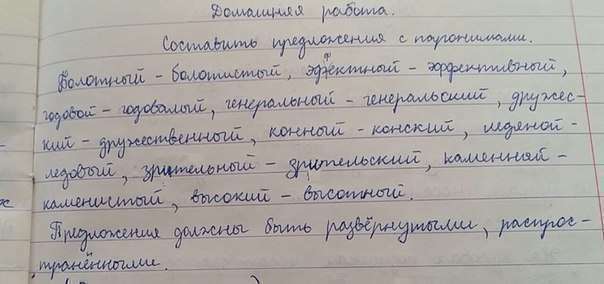 Домашняя работа.
Составить предложения с паронимами.
Болотный - болотистый, эффектный - эффективный,
годовой - годовалый, генеральный - генеральский, дружес-
кий - дружественный, конный - конский, ледяной -
ледовый, зрительный - зрительский, каменный -
каменистый, высокий - высотный.
Предложения должны быть развёрнутыми, распрос-
транёнными.